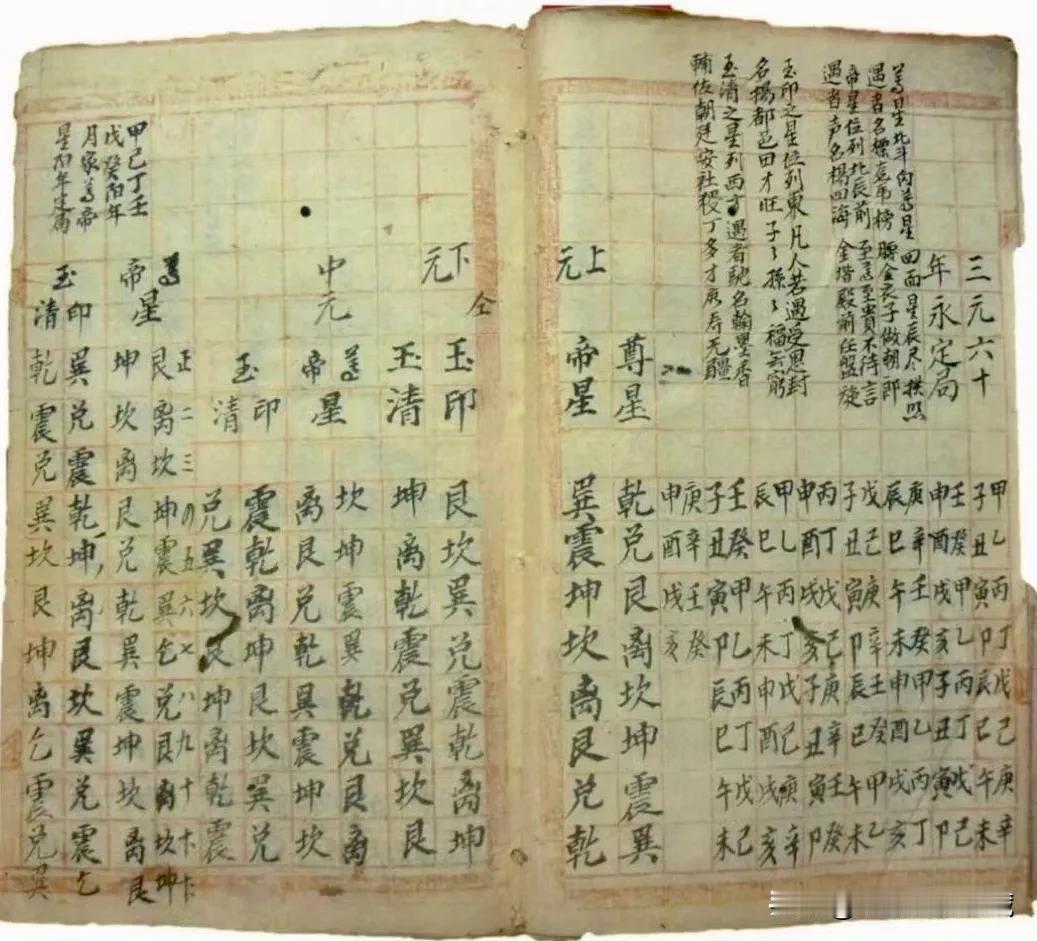 三元六十
年永定局
尊星北斗內尊星 四面星辰尽拱照
遇者名標虎榜 腰金衣子做朝郎
帝星位列北辰前 至尊至貴不待言
遇者声名揚四海 金堦殿前任盤旋
玉印之星位列東 凡人若遇受恩封
名揚都邑田才旺 子子孫孫福无窮
玉清之星列西方 遇者馳名翰墨香
輔佐朝廷安社稷 丁多才廣寿无疆
甲子 乙丑 丙寅 丁卯 戊辰 己巳 庚午 辛未
壬申 癸酉 甲戌 乙亥 丙子 丁丑 戊寅 己卯
庚辰 辛巳 壬午 癸未 甲申 乙酉 丙戌 丁亥
戊子 己丑 庚寅 辛卯 壬辰 癸巳 甲午 乙未
丙申 丁酉 戊戌 己亥 庚子 辛丑 壬寅 癸卯
甲辰 乙巳 丙午 丁未 戊申 己酉 庚戌 辛亥
壬子 癸丑 甲寅 乙卯 丙辰 丁巳 戊午 己未
庚申 辛酉 壬戌 癸亥
上元
尊星 乾兑艮离坎坤震巽
帝星 巽震坤坎离艮兑乾
下元
仝
玉印 艮坎巽兑震乾离坤
玉清 坤离乾震兑巽坎艮
中元
尊帝星
坎坤震巽乾兑艮离
离艮兑乾巽震坤坎
玉印清
震乾离坤艮坎巽兑
兑巽坎艮坤离乾震
正二三四五六七八九十
尊帝星
艮离坎坤震巽乞兑艮离坎坤
坤坎离艮兑乾巽震坤坎离艮
玉印清
巽兑震乾坤离艮坎巽兑震乞
乾震兑巽坎艮坤离乞震兑巽
甲己丁壬
戊癸阳年
月家尊帝